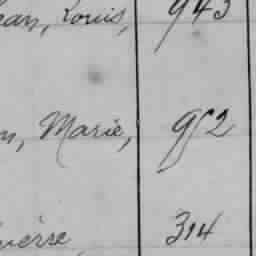 ean, Louis, 943
n, Marie, 952
uerre 314